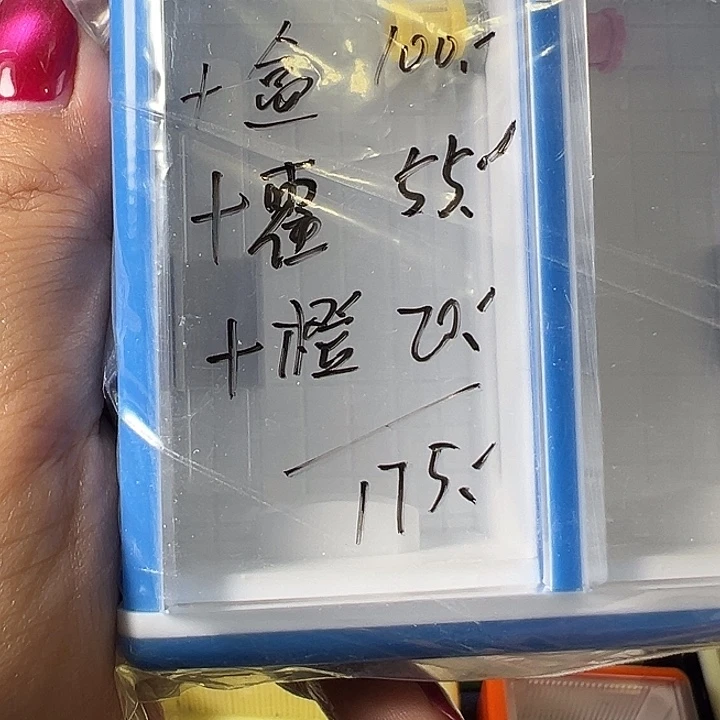 + 盒 100.-
+ 蓋 55.-
+ 橙 20.-
175.-